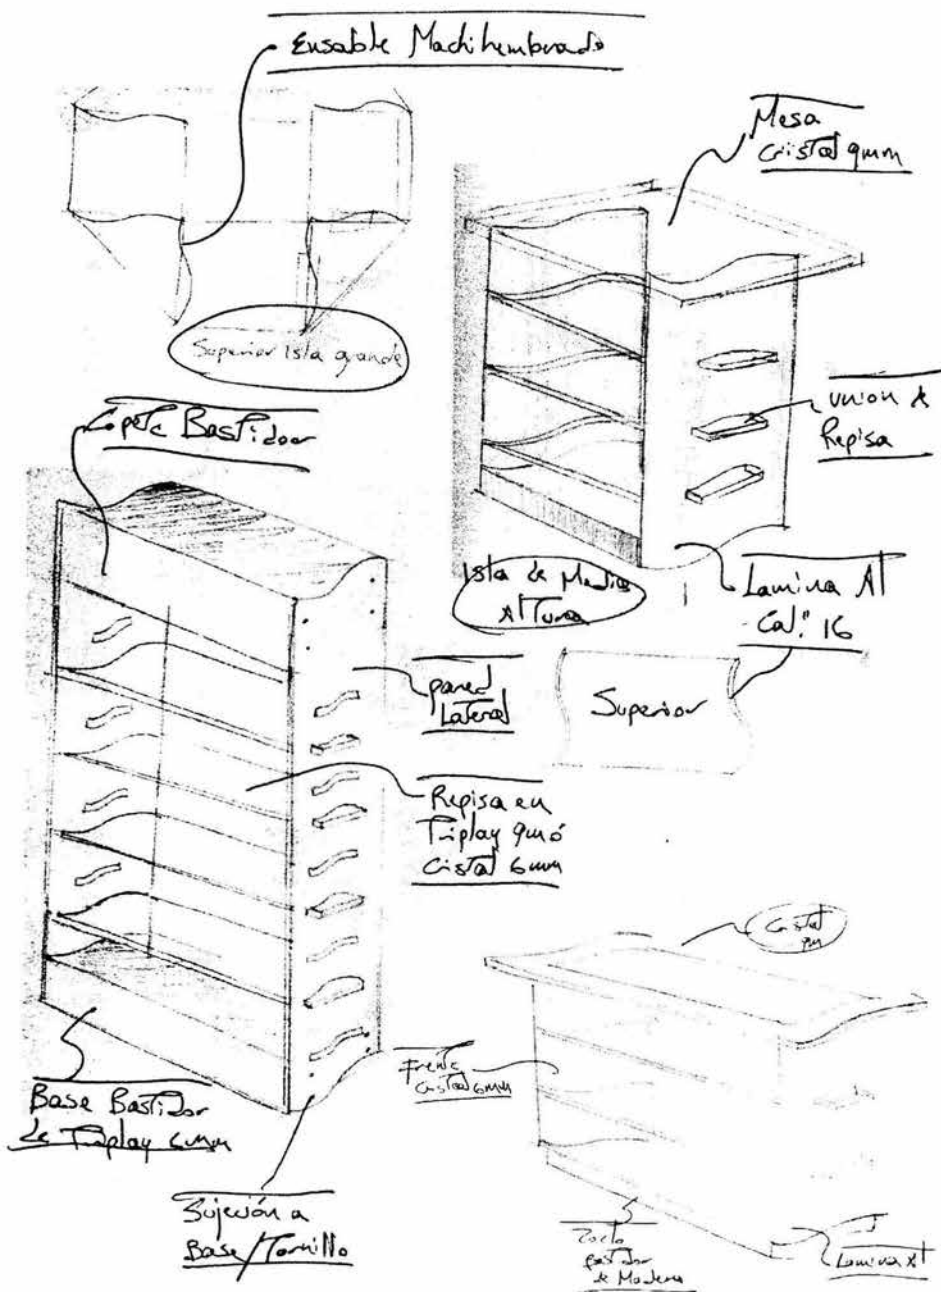 Ensable Machihembrado
Mesa
Cristal 9mm
Superior Isla grande
Copete Bastidor
union de
Repisa
Isla de Media
Altura
Lamina Al
Cal." 16
pared
Lateral
Superior
Repisa en
Triplay 9mm ó
Cristal 6mm
Cristal
9m
Frente
Cristal 6mm
Base Bastidor
de Triplay 6mm
Sujeción a
Base/Tornillo
Zoclo
Bastidor
de Madera
Lamina Al